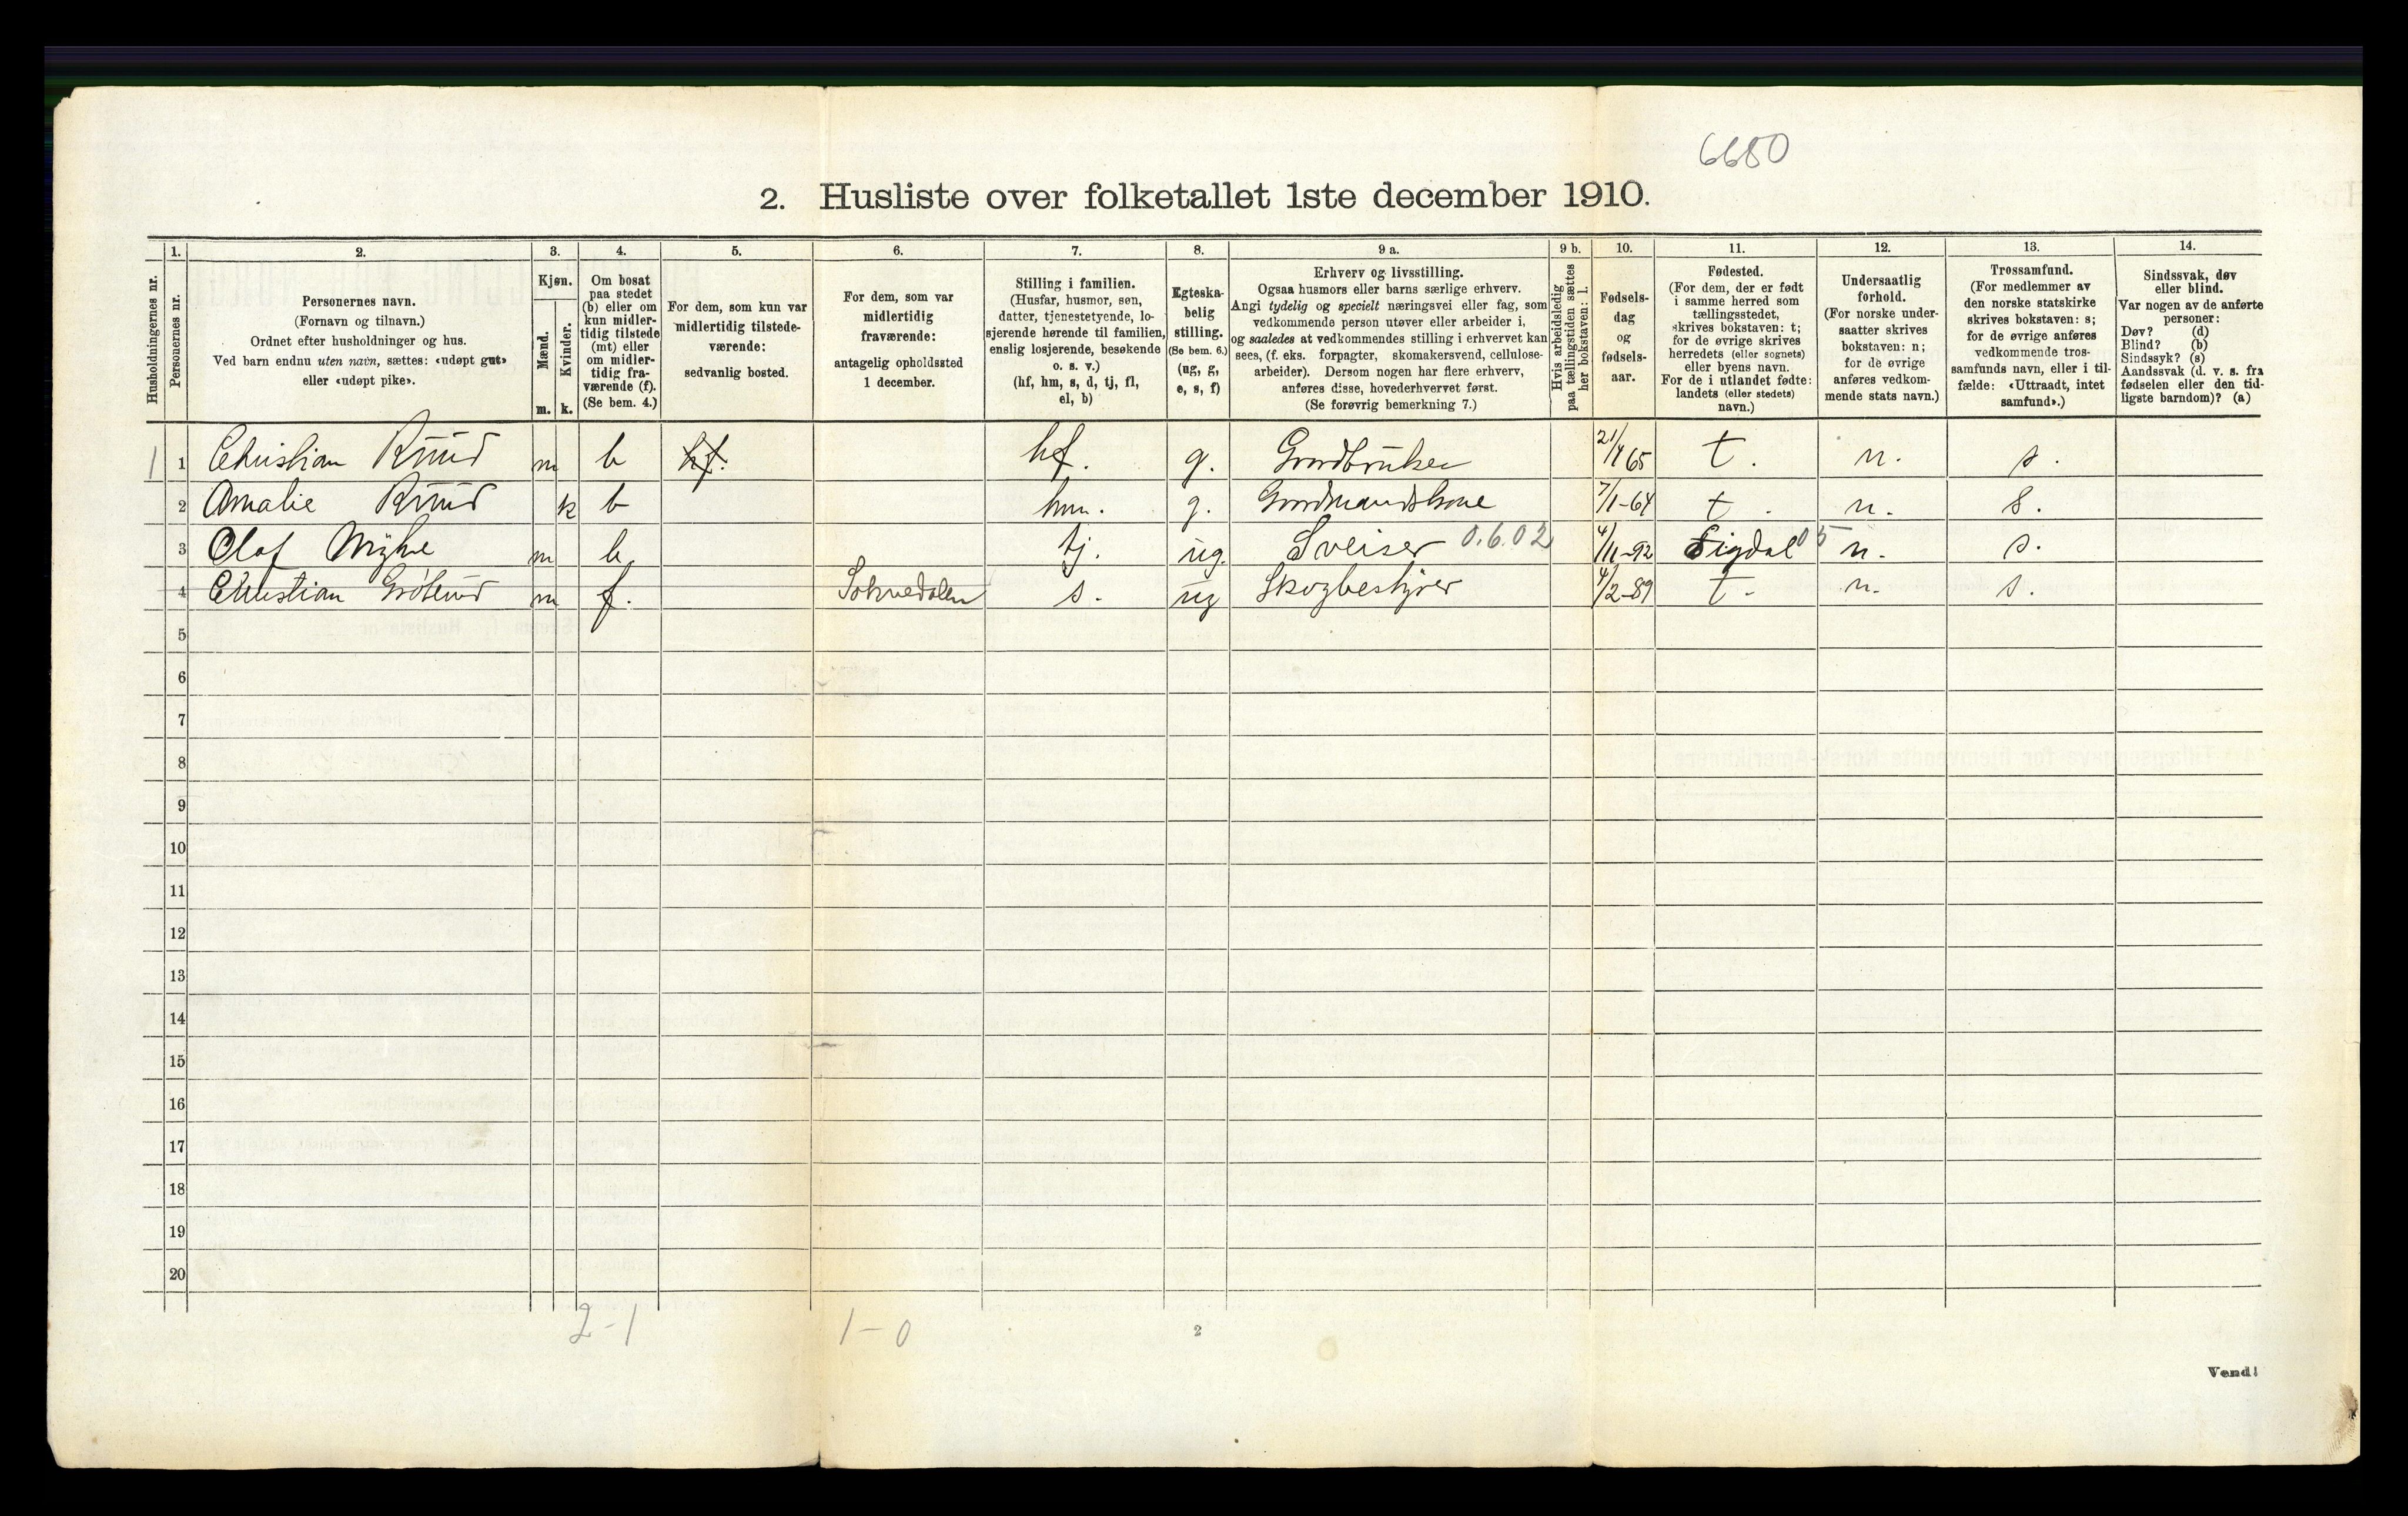 6680
2. Husliste over folketallet 1ste december 1910.
Husholdningernes nr.
1.
Personernes nr.
2.
Personernes navn.
(Fornavn og tilnavn.)
Ordnet efter husholdninger og hus.
Ved barn endnu uten navn, sættes: «udøpt gut»
eller «udøpt pike».
3.
Kjøn.
Mænd.
Kvinder.
m. k.
4.
Om bosat
paa stedet
(b) eller om
kun midler-
tidig tilstede
(mt) eller
om midler-
tidig fra-
værende (f).
(Se bem. 4.)
5.
For dem, som kun var
midlertidig tilstede-
værende:
sedvanlig bosted.
6.
For dem, som var
midlertidig
fraværende:
antagelig opholdssted
1 december.
7.
Stilling i familien.
(Husfar, husmor, søn,
datter, tjenestetyende, lo-
sjerende hørende til familien,
enslig losjerende, besøkende
o. s. v.)
(hf, hm, s, d, tj, fl,
el, b)
8.
Egteska-
belig
stilling.
(Se bem. 6.)
(ug, g,
e, s, f)
9 a.
Erhverv og livsstilling.
Ogsaa husmors eller barns særlige erhverv.
Angi tydelig og specielt næringsvei eller fag, som
vedkommende person utøver eller arbeider i,
og saaledes at vedkommendes stilling i erhvervet kan
sees, (f. eks. forpagter, skomakersvend, cellulose-
arbeider). Dersom nogen har flere erhverv,
anføres disse, hovederhvervet først.
(Se forøvrig bemerkning 7.)
9 b.
Hvis arbeidsledig
paa tællingstiden sættes
her bokstaven: l.
10.
Fødsels-
dag
og
fødsels-
aar.
11.
Fødested.
(For dem, der er født
i samme herred som
tællingsstedet,
skrives bokstaven: t;
for de øvrige skrives
herredets (eller sognets)
eller byens navn.
For de i utlandet fødte:
landets (eller stedets)
navn.)
12.
Undersaatlig
forhold.
(For norske under-
saatter skrives
bokstaven: n;
for de øvrige
anføres vedkom-
mende stats navn.)
13.
Trossamfund.
(For medlemmer av
den norske statskirke
skrives bokstaven: s;
for de øvrige anføres
vedkommende tros-
samfunds navn, eller i til-
fælde: «Uttraadt, intet
samfund».)
14.
Sindssvak, døv
eller blind.
Var nogen av de anførte
personer:
Døv? (d)
Blind? (b)
Sindssyk? (s)
Aandssvak (d. v. s. fra
fødselen eller den tid-
ligste barndom)? (a)
1 1 Christian Ruud m b hf. hf. g. Gardbruker 21/4 65 t. n. s.
2 Amalie Ruud k b hm. g. Gardmandskone 7/1-64 t. n. s.
3 Olaf Myhre m b tj. ug. Sveiser 0.6.02 4/11-92 Sigdal 05 n. s.
4 Christian m f. Soknedalen s. ug Skogbestyrer 4/2-89 t. n. s.
5
6
7
8
9
10
11
12
13
14
15
16
17
18
19
20
2-1 1-0
2
Vend!